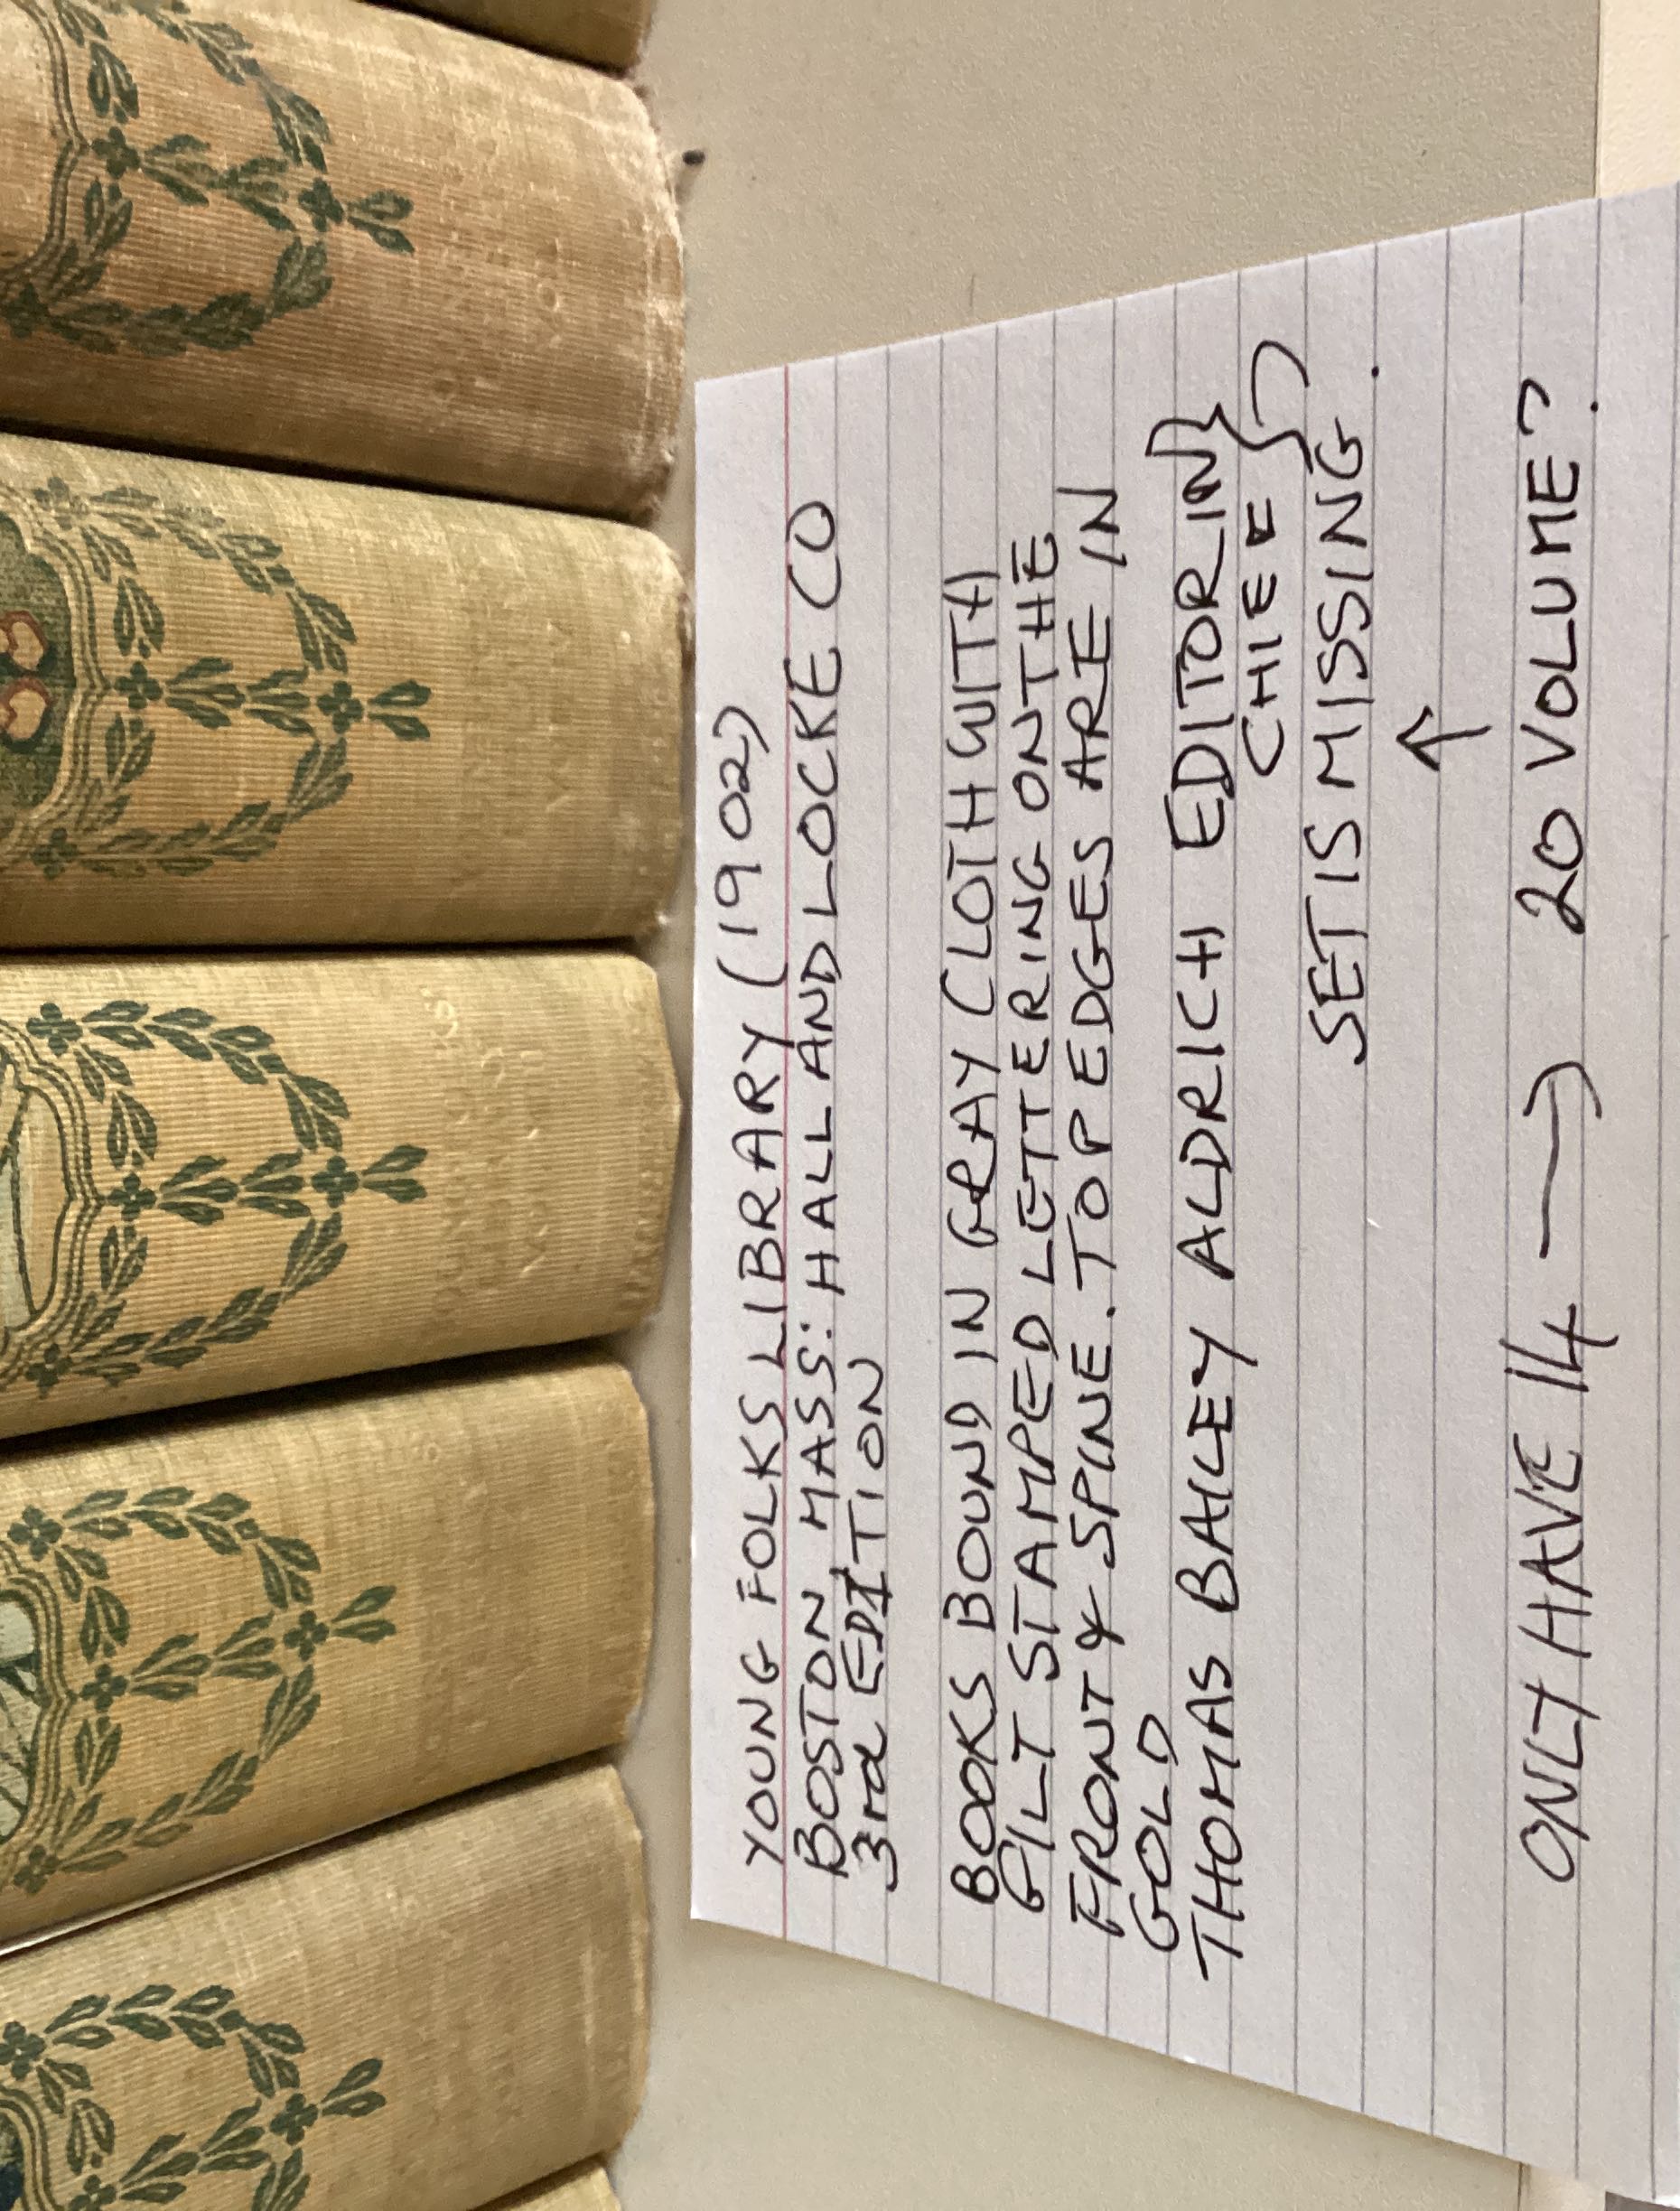 YOUNG FOLKS LIBRARY (1902)
BOSTON MASS: HALL AND LOCKE CO
3rd EDITION
BOOKS BOUND IN GRAY CLOTH WITH
GILT STAMPED LETTERING ON THE
FRONT & SPINE. TOP EDGES ARE IN
GOLD
THOMAS BAILEY ALDRICH EDITOR IN }
CHIEF }
SET IS MISSING.
↑
ONLY HAVE 14 → 20 VOLUME?